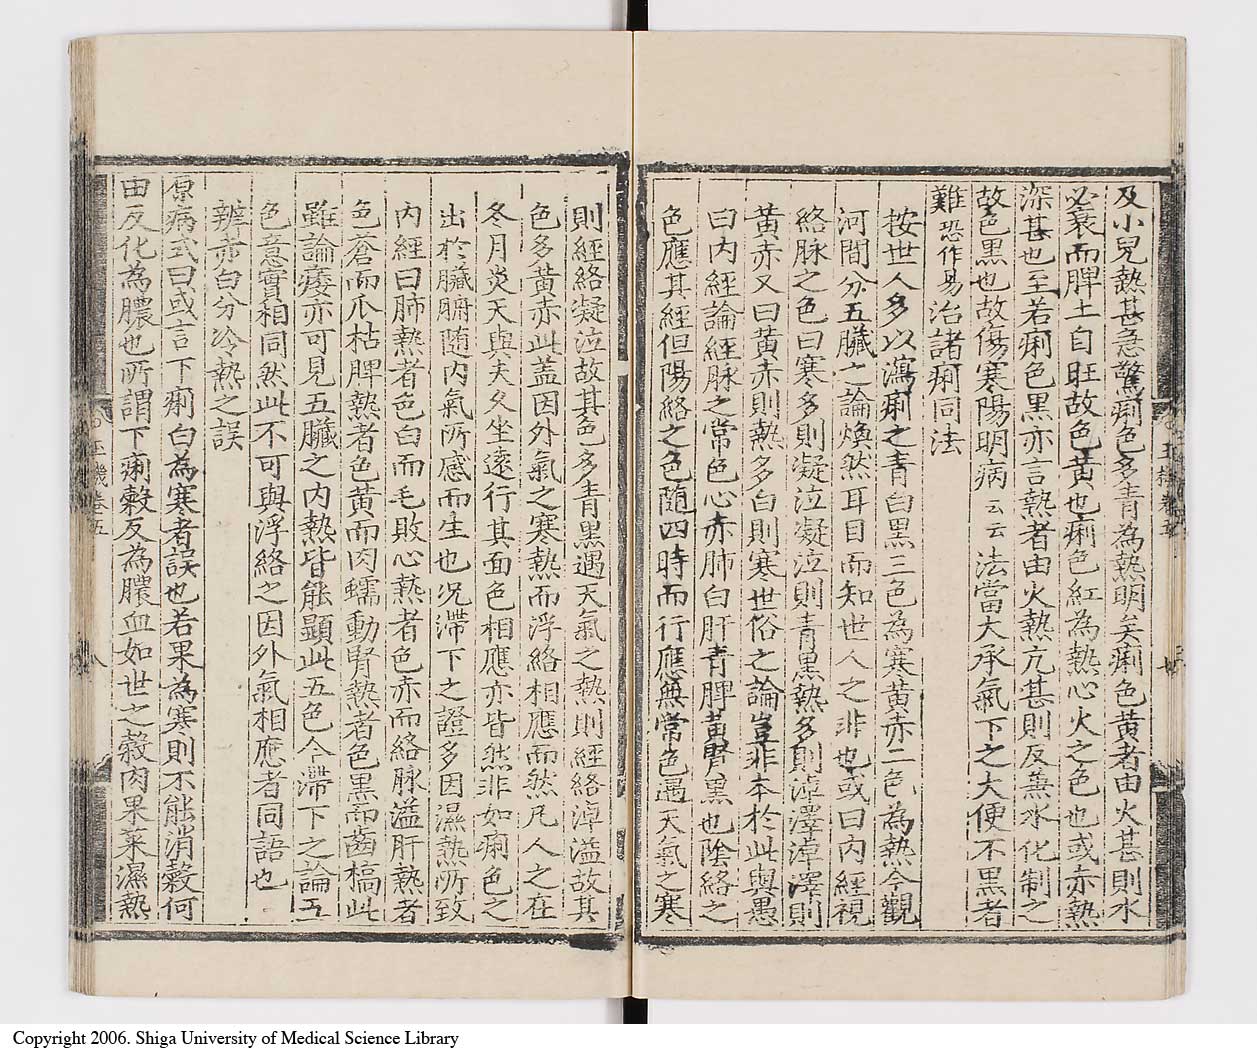 及小兒熱甚急驚痢色多青為熱明矣痢色黃者由火甚則水
必衰而脾土自旺故色黃也痢色紅為熱心火之色也或赤熱
深甚也至若痢色黑亦言熱者由火熱亢甚則反兼水化制之
故色黑也故傷寒陽明病云云法當大承氣下之大便不黑者
難恐作易治諸痢同法
按世人多以瀉痢之青白黑三色為寒黃赤二色為熱今觀
河間分五臟之論煥然耳目而知世人之非也或曰內經視
絡脉之色曰寒多則凝泣凝泣則青黑熱多則淖澤淖澤則
黃赤又曰黃赤則熱多白則寒世俗之論豈非本於此與愚
曰內經論經脉之常色心赤肺白肝青脾黃腎黑也陰絡之
色應其經但陽絡之色隨四時而行應無常色遇天氣之寒
則經絡凝泣故其色多青黑遇天氣之熱則經絡淖溢故其
色多黃赤此蓋因外氣之寒熱而浮絡相應而然凡人之在
冬月炎天與夫久坐遠行其面色相應亦皆然非如痢色之
出於臟腑隨內氣所感而生也况滯下之證多因濕熱所致
內經曰肺熱者色白而毛敗心熱者色赤而絡脉溢肝熱者
色蒼而爪枯脾熱者色黃而肉蠕動腎熱者色黑而齒槁此
雖論痿亦可見五臟之內熱皆能顯此五色今滯下之論五
色意實相同然此不可與浮絡之因外氣相應者同語也
辨赤白分冷熱之誤
原病式曰或言下痢白為寒者誤也若果為寒則不能消穀何
由反化為膿也所謂下痢穀反為膿血如世之穀肉果菜濕熱
玉機卷五
八
Copyright 2006. Shiga University of Medical Science Library